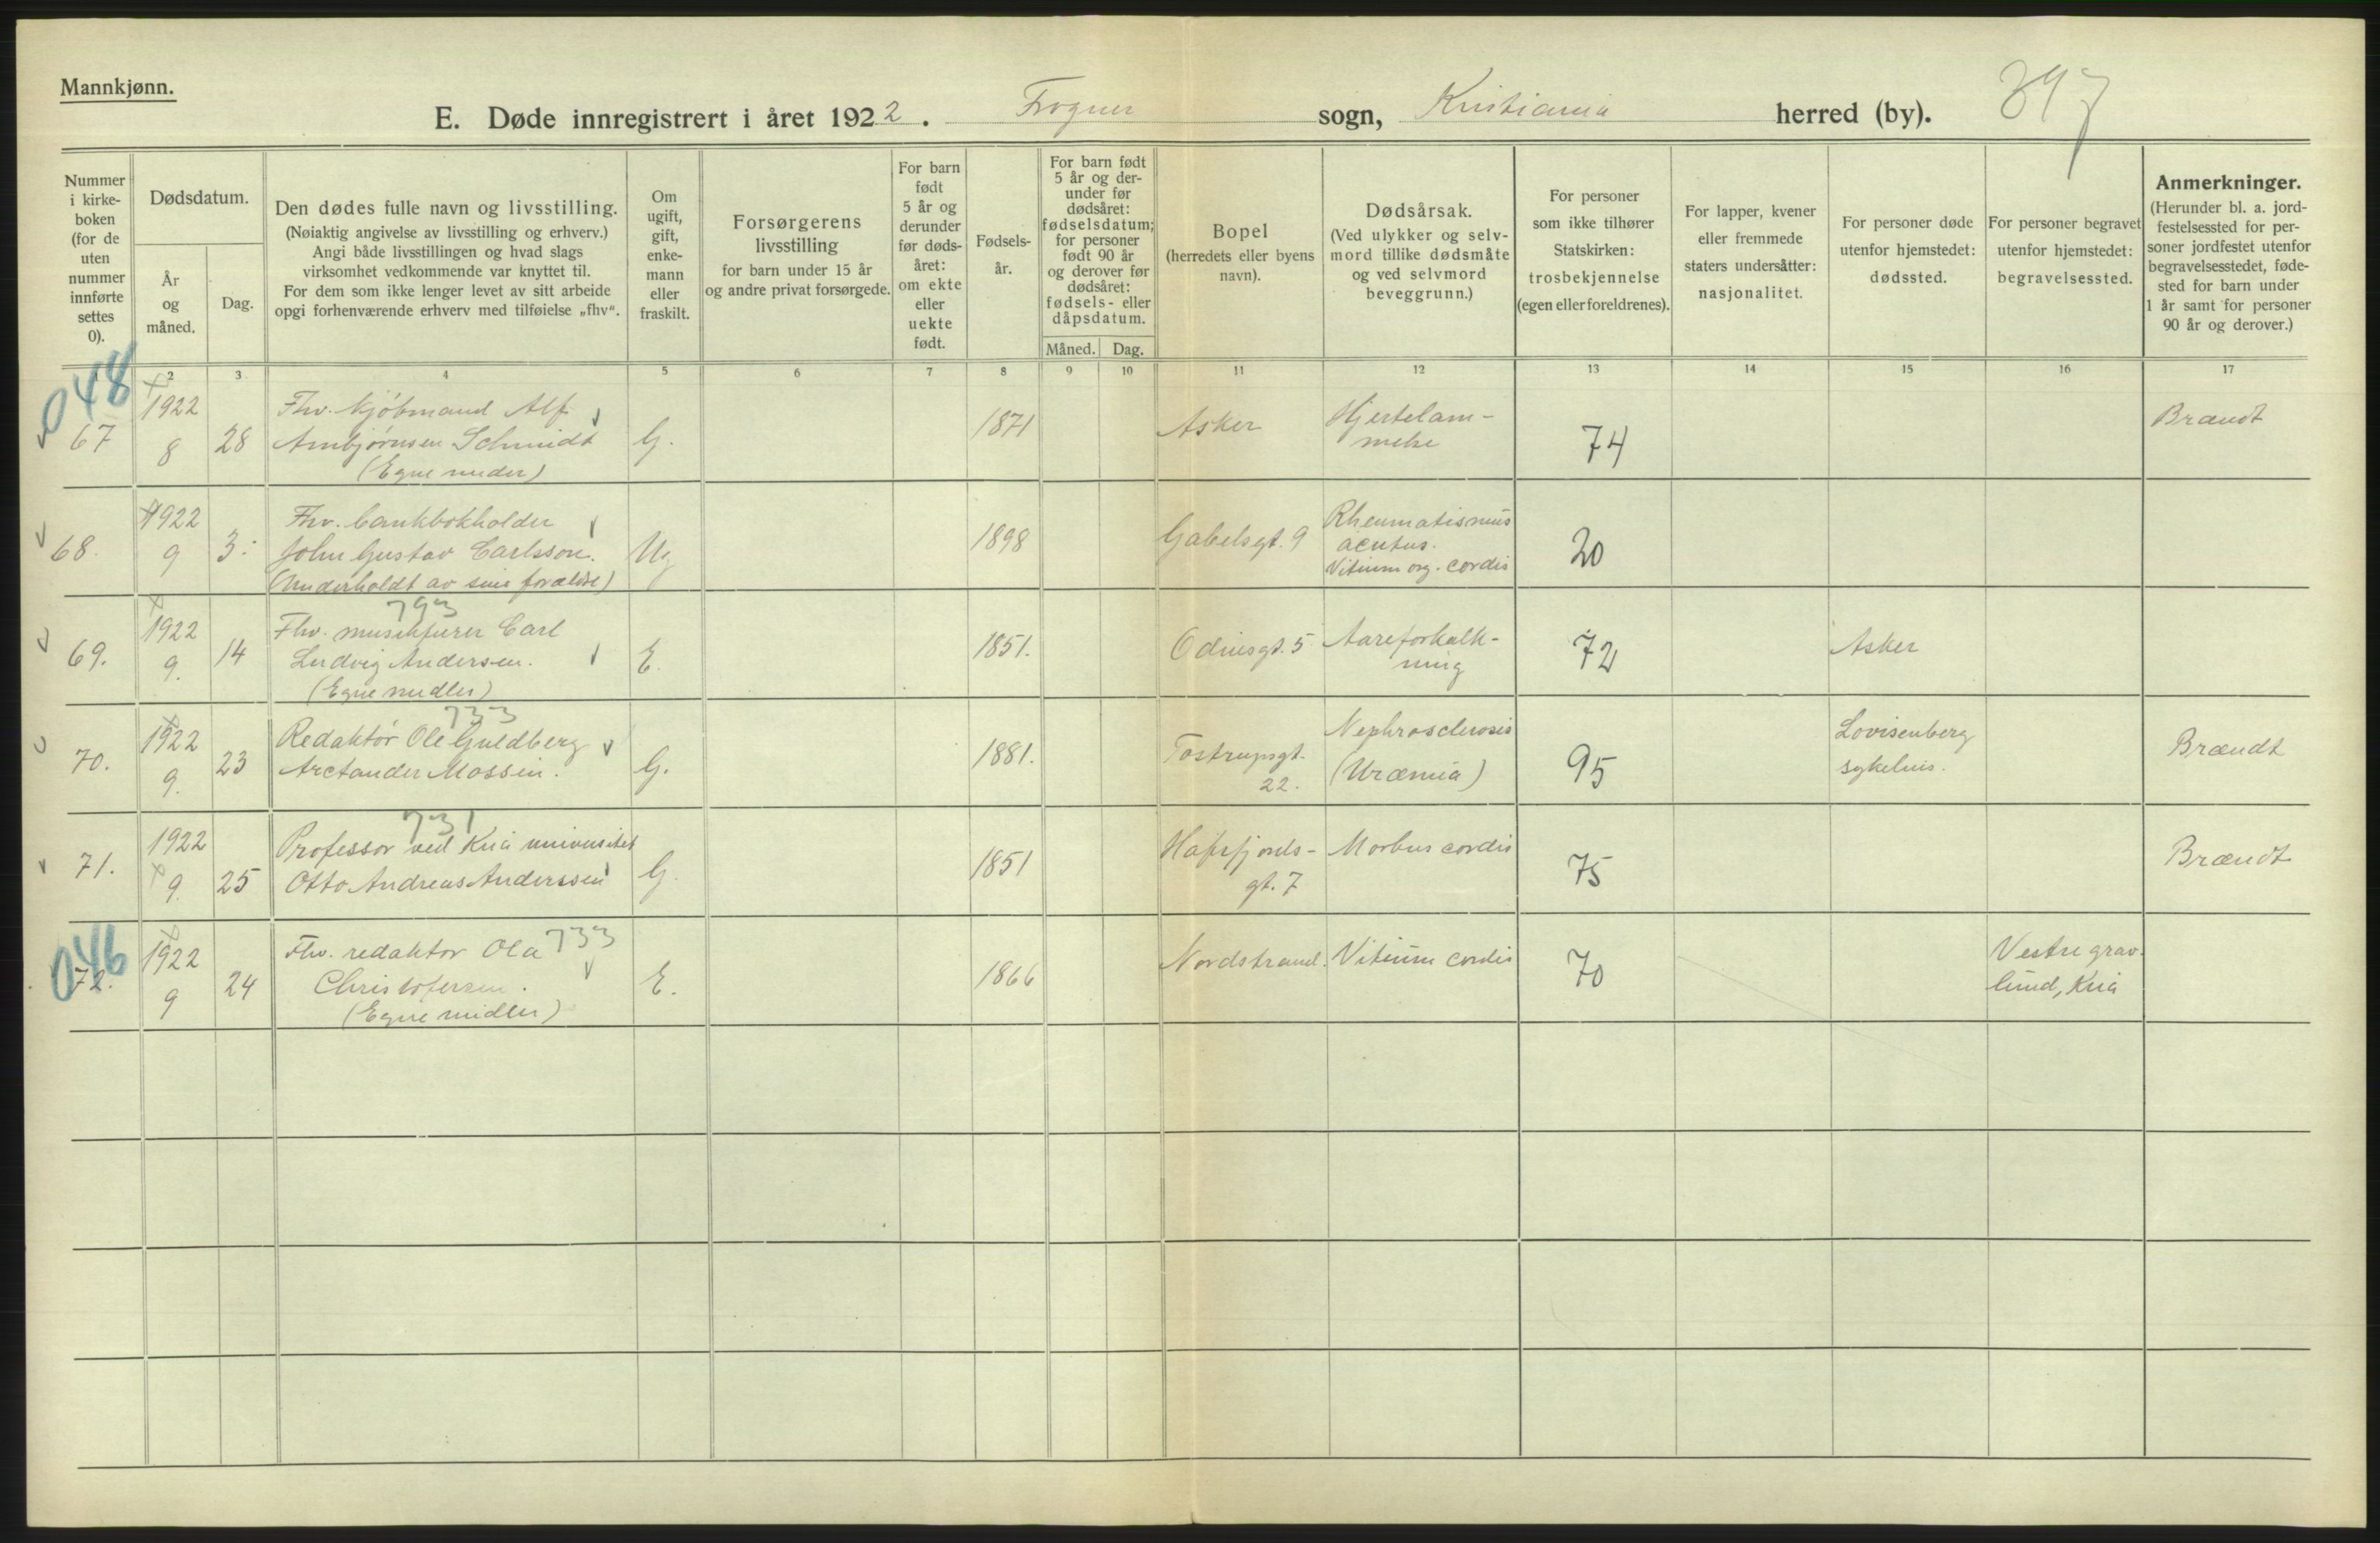 Mannkjønn.
E. Døde innregistrert i året 1922. Frogner sogn, Kristiania herred (by). 397
Nummer i kirkeboken (for de uten nummer innførte settes 0).
Dødsdatum.
År og måned.
Dag.
Den dødes fulle navn og livsstilling.
(Nøiaktig angivelse av livsstilling og erhverv.)
Angi både livsstillingen og hvad slags
virksomhet vedkommende var knyttet til.
For dem som ikke lenger levet av sitt arbeide
opgi forhenværende erhverv med tilføielse „fhv“.
Om
ugift,
gift,
enke-
mann
eller
fraskilt.
Forsørgerens
livsstilling
for barn under 15 år
og andre privat forsørgede.
For barn
født
5 år og
derunder
før døds-
året:
om ekte
eller
uekte
født.
Fødsels-
år.
For barn født
5 år og der-
under før
dødsåret:
fødselsdatum;
for personer
født 90 år
og derover før
dødsåret:
fødsels- eller
dåpsdatum.
Måned. Dag.
Bopel
(herredets eller byens
navn).
Dødsårsak.
(Ved ulykker og selv-
mord tillike dødsmåte
og ved selvmord
beveggrunn.)
For personer
som ikke tilhører
Statskirken:
trosbekjennelse
(egen eller foreldrenes).
For lapper, kvener
eller fremmede
staters undersåtter:
nasjonalitet.
For personer døde
utenfor hjemstedet:
dødssted.
For personer begravet
utenfor hjemstedet:
begravelsessted.
Anmerkninger.
(Herunder bl. a. jord-
festelsessted for per-
soner jordfestet utenfor
begravelsesstedet, føde-
sted for barn under
1 år samt for personer
90 år og derover.)
2 3 4 5 6 7 8 9 10 11 12 13 14 15 16 17
048
67 1922 8 28
Fhv. kjøbmand Alf
Ambjørnsen Schmidt
(Egne midler)
G. 1871 Asker
Hjertelam-
melse
74 Brændt
68. 1922 9 3.
Fhv. bankbokholder
John Gustav Carlsson.
(Underholdt av sine forældre)
Ug 1898 Gabelsgt. 9
Rheumatismus
acutus.
Vitium org. cordis
20
793
69. 1922 9. 14
Fhv. musikfører Carl
Ludvig Andersen.
(Egne midler)
E. 1851. Odinsgt. 5
Aareforkalk-
ning
72 Asker
733
70. 1922 9. 23
Redaktør Ole Guldberg
Arctander Mossin.
G. 1881.
Tostrupsgt.
22.
Nephrosclerosis
(Uræmia)
95
Lovisenberg
sykehus.
Brændt
731
71. 1922 9. 25
Professor ved Kria universitet
Otto Andreas Anderssen
G. 1851
Hafrsfjords-
gt. 7
Morbus cordis 75 Brændt
046
72. 1922 9 24
Fhv. redaktør Ola 733
Christofersen.
(Egne midler)
E. 1866 Nordstrand. Vitium cordis 70
Vestre grav-
lund, Kria